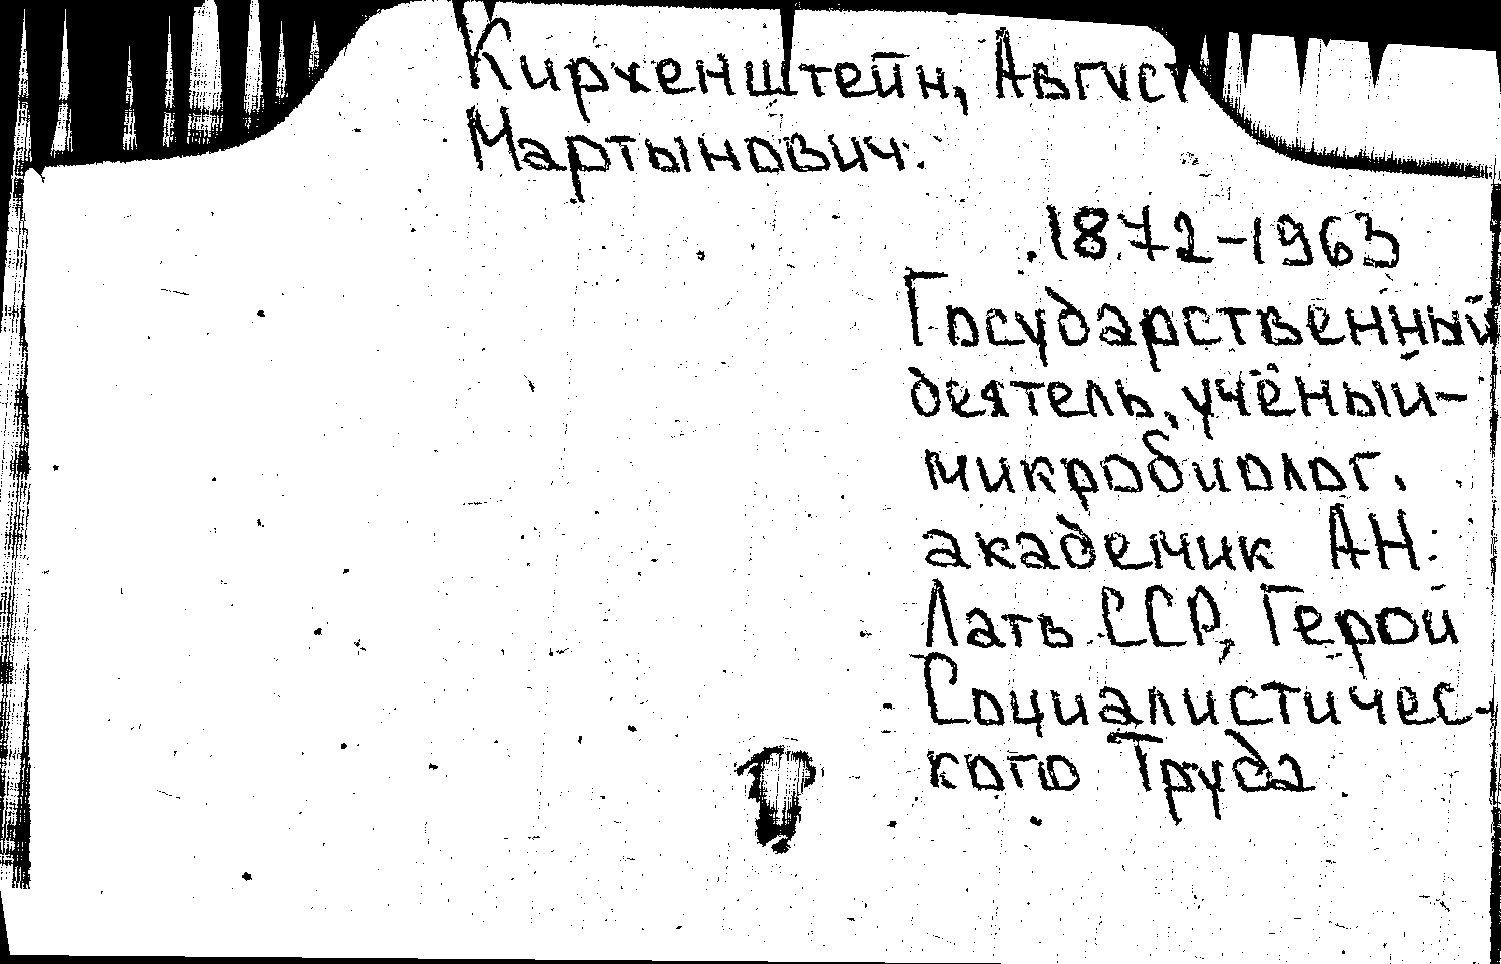 Кирхенштейн, Август
Мартынович.
1872-1963
Государственный
деятель, учёный-
микробиолог,
академик АН
Латв ССР, Герой
Социалистичес-
кого Труда